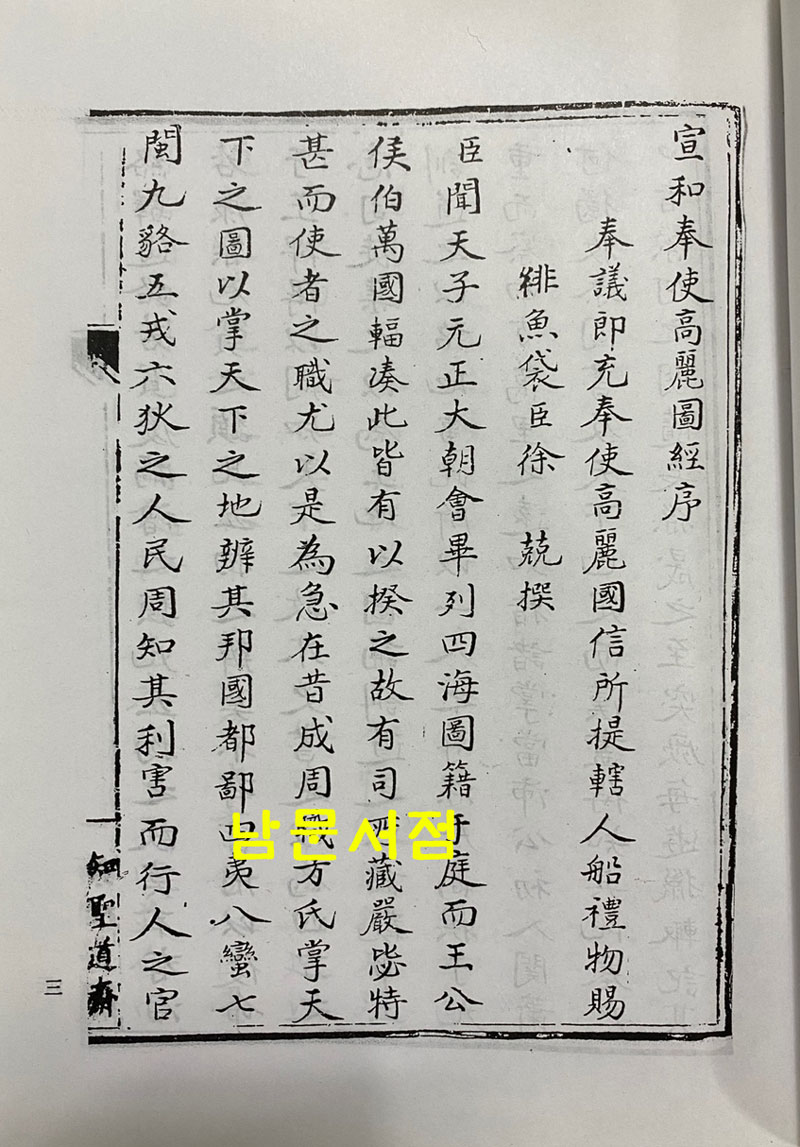 宣和奉使高麗圖經序
奉議郎充奉使高麗國信所提轄人船禮物賜
緋魚袋臣徐 兢撰
臣聞天子元正大朝會畢列四海圖籍于庭而王公
侯伯萬國輻凑此皆有以揆之故有司所藏嚴毖特
甚而使者之職尤以是為急在昔成周職方氏掌天
下之圖以掌天下之地辨其邦國都鄙四夷八蠻七
閩九貉五戎六狄之人民周知其利害而行人之官
知聖道齋
三
남문서점